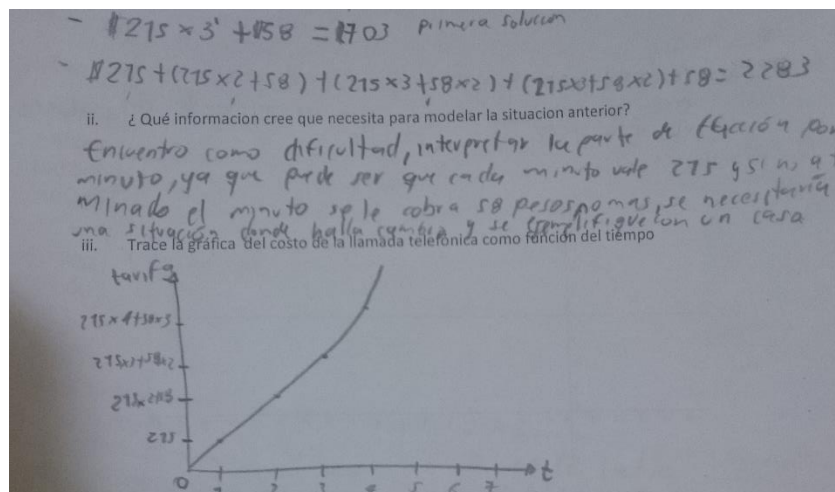 - $215 x 3' + $58 = 1703 Primera solucion
- $215 + (215 x 2 + 58) + (215 x 3 + 58 x 2) + (215x3+58x2)+58= 2283
ii. ¿ Qué informacion cree que necesita para modelar la situacion anterior?
Encuentro como dificultad, interpretar la parte de fracción por
minuto, ya que puede ser que cada minuto vale 215 y si no
minado el minuto se le cobra 58 pesos nomas, se necesitaria
una situación donde halla y se con un caso
iii. Trace la gráfica del costo de la llamada telefónica como función del tiempo
tarifa
215 x 4+58x3
215x3+58x2
215x2+58
215
0 1 2 3 4 5 6 7 t